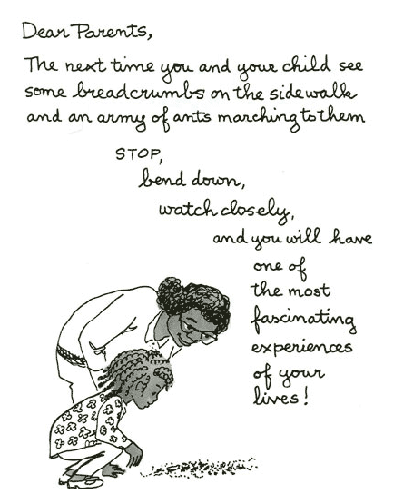 Dear Parents,
The next time you and your child see
some breadcrumbs on the sidewalk
and an army of ants marching to them
STOP,
bend down,
watch closely,
and you will have
one of
the most
fascinating
experiences
of your
lives!